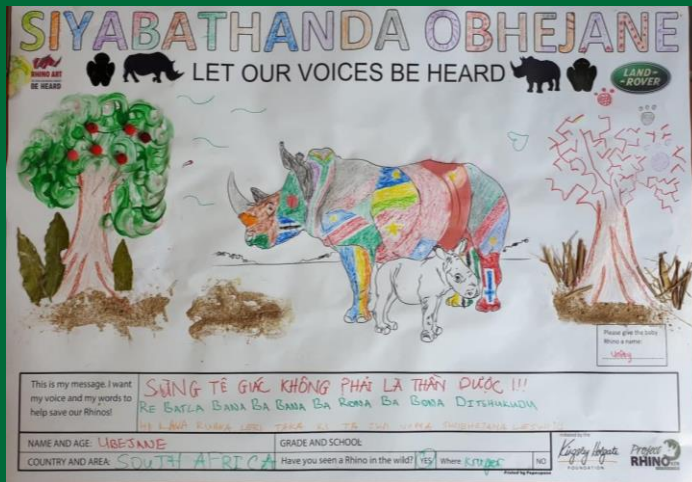 SIYABATHANDA OBHEJANE
LET OUR VOICES BE HEARD
RHINO ART
BE HEARD
LAND-ROVER
Please give the baby Rhino a name:
This is my message. I want my voice and my words to help save our Rhinos!
SỪNG TÊ GIÁC KHÔNG PHẢI LÀ THẦN DƯỢC !!!
RE BATLA BANA BA BANA BA RONA BA BONA DITSHUKUDU
NAME AND AGE: UBEJANE
GRADE AND SCHOOL:
COUNTRY AND AREA: SOUTH AFRICA
Have you seen a Rhino in the wild? YES Where Kruger NO
Kingsley Holgate
FOUNDATION
Project
RHINO